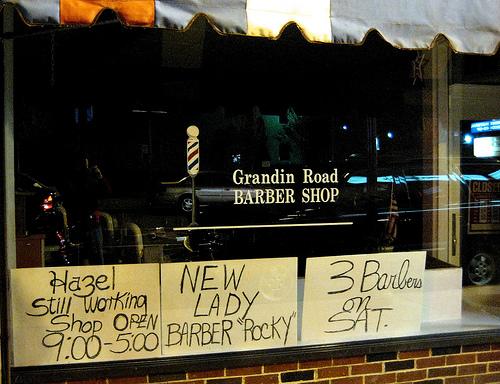 Grandin Road
BARBER SHOP
Hazel
Still Working
Shop OPEN
9:00-5:00
NEW
LADY
BARBER "ROCKY"
3 Barbers
on
SAT.